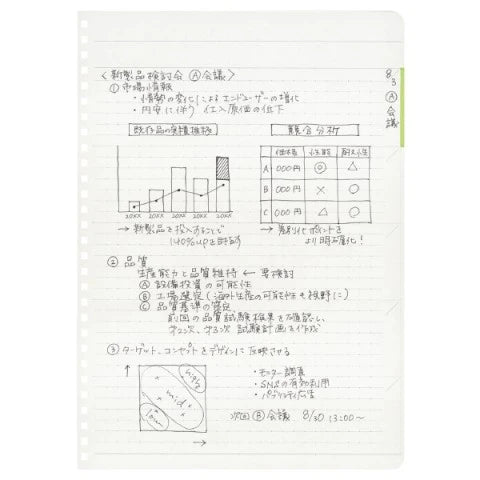 8/3 Ⓐ会議
〈新製品検討会 Ⓐ会議〉
① 市場情報
・情勢の変化によるエンドユーザーの増化
・円安に伴う 仕入原価の低下
既存品の実績推移
20XX 20XX 20XX 20XX 20XX
→ 新製品を投入することで
140%upを目指す
競合分析
価格 性能 耐久性
A 000円 ◎ △
B 000円 × ○
C 000円 △ ○
→ 差別化ポイントを
より明確化!
② 品質
生産能力と品質維持 ← 要検討
Ⓐ 設備投資の可能性
Ⓑ 工場選定(海外生産の可能性も視野に)
Ⓒ 品質基準の策定
前回の品質試験結果を確認し、
第2次、第3次 試験計画を作成
③ ターゲット、コンセプトをデザインに反映させる
high
mid
low
・モニター調査
・SNSの有効利用
・パブリシティ広告
次回 Ⓑ会議 8/30 13:00〜